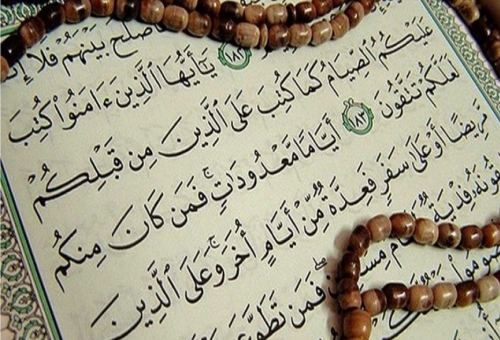 صلح بينهم فلا إ
﴿١٨٢﴾ يَٰٓأَيُّهَا ٱلَّذِينَ ءَامَنُوا۟ كُتِبَ
عَلَيْكُمُ ٱلصِّيَامُ كَمَا كُتِبَ عَلَى ٱلَّذِينَ مِن قَبْلِكُمْ
لَعَلَّكُمْ تَتَّقُونَ ﴿١٨٣﴾ أَيَّامًا مَّعْدُودَٰتٍ ۚ فَمَن كَانَ مِنكُم
مَّرِيضًا أَوْ عَلَىٰ سَفَرٍ فَعِدَّةٌ مِّنْ أَيَّامٍ أُخَرَ ۚ وَعَلَى ٱلَّذِينَ
ونَهُۥ فِدْيَةٌ مِسْ فَمَن تَطَوَّ